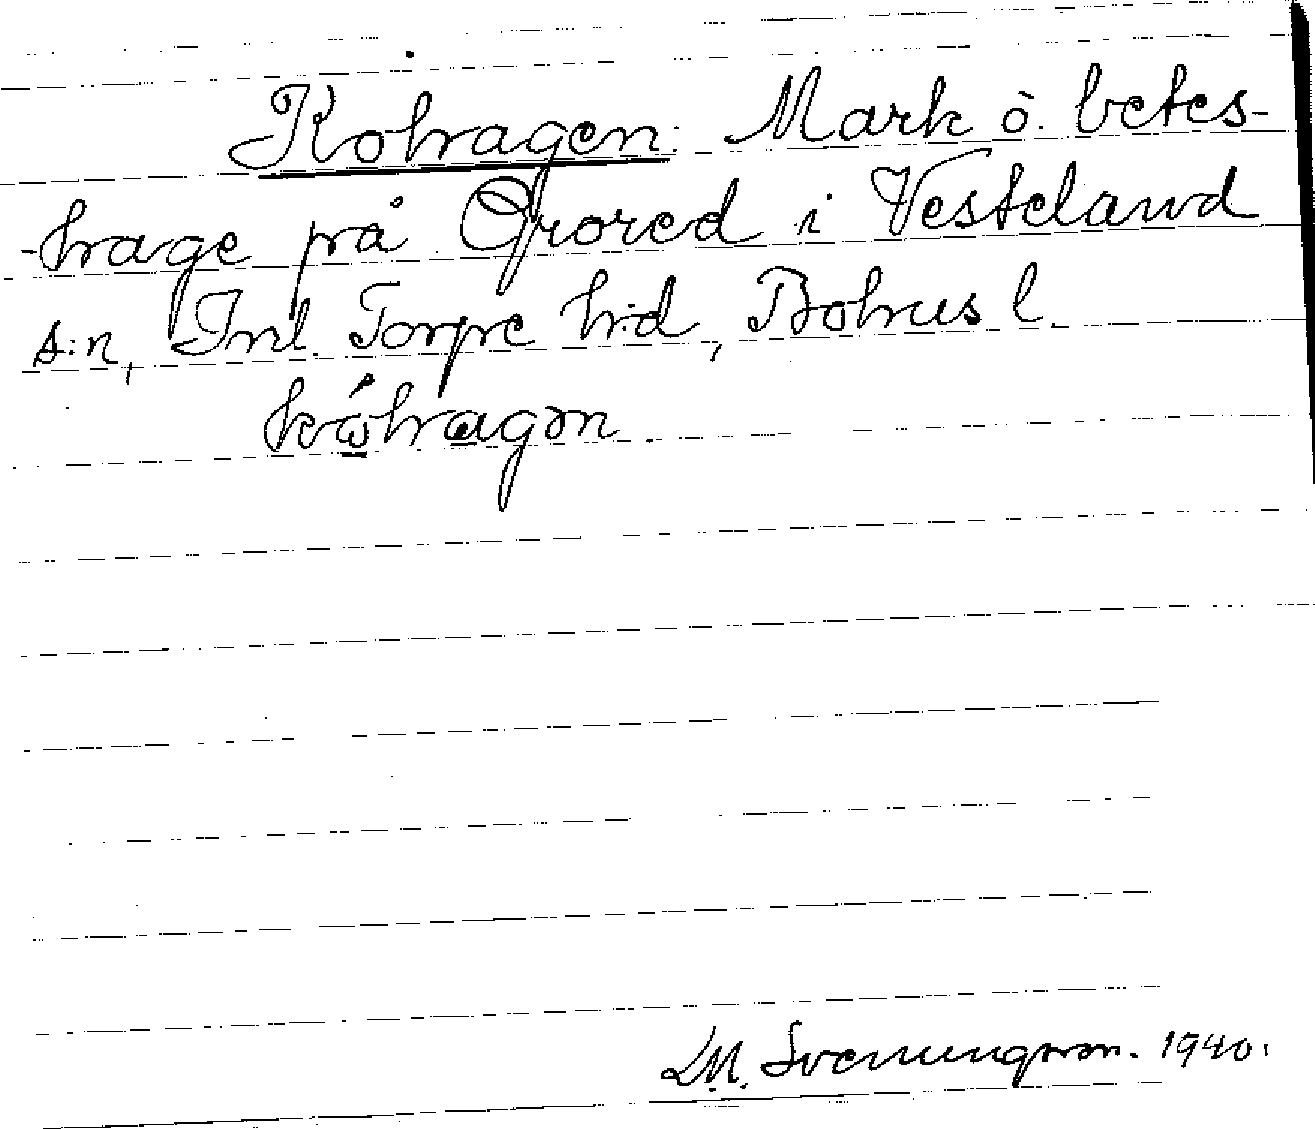 Kohagen: Mark o. betes-
-hage på Grored i Vesteland
s:n, Inl. Torpe h:d, Bohus l.
kṓhagən
LM. Svenungsson. 1940.